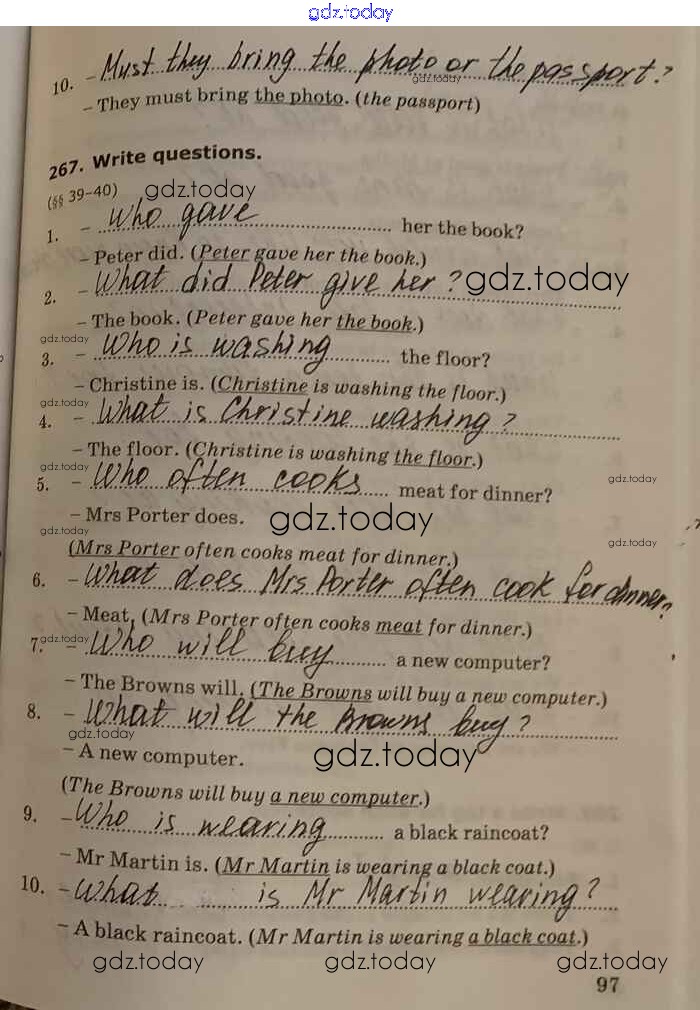 gdz.today
10. – Must they bring the photo or the passport?
gdz.today
– They must bring the photo. (the passport)
267. Write questions.
(§§ 39–40) gdz.today
1. – Who gave her the book?
– Peter did. (Peter gave her the book.)
2. – What did Peter give her? gdz.today
– The book. (Peter gave her the book.)
gdz.today
3. – Who is washing the floor?
– Christine is. (Christine is washing the floor.)
gdz.today
4. – What is Christine washing?
– The floor. (Christine is washing the floor.)
gdz.today
5. – Who often cooks meat for dinner? gdz.today
– Mrs Porter does. gdz.today
gdz.today gdz.today
(Mrs Porter often cooks meat for dinner.)
6. – What does Mrs Porter often cook for dinner?
– Meat. (Mrs Porter often cooks meat for dinner.)
7. gdz.today – Who will buy a new computer?
– The Browns will. (The Browns will buy a new computer.)
8. – What will the Browns buy?
gdz.today
– A new computer. gdz.today
(The Browns will buy a new computer.)
9. – Who is wearing a black raincoat?
– Mr Martin is. (Mr Martin is wearing a black coat.)
10. – What is Mr Martin wearing?
– A black raincoat. (Mr Martin is wearing a black coat.)
gdz.today gdz.today gdz.today
97